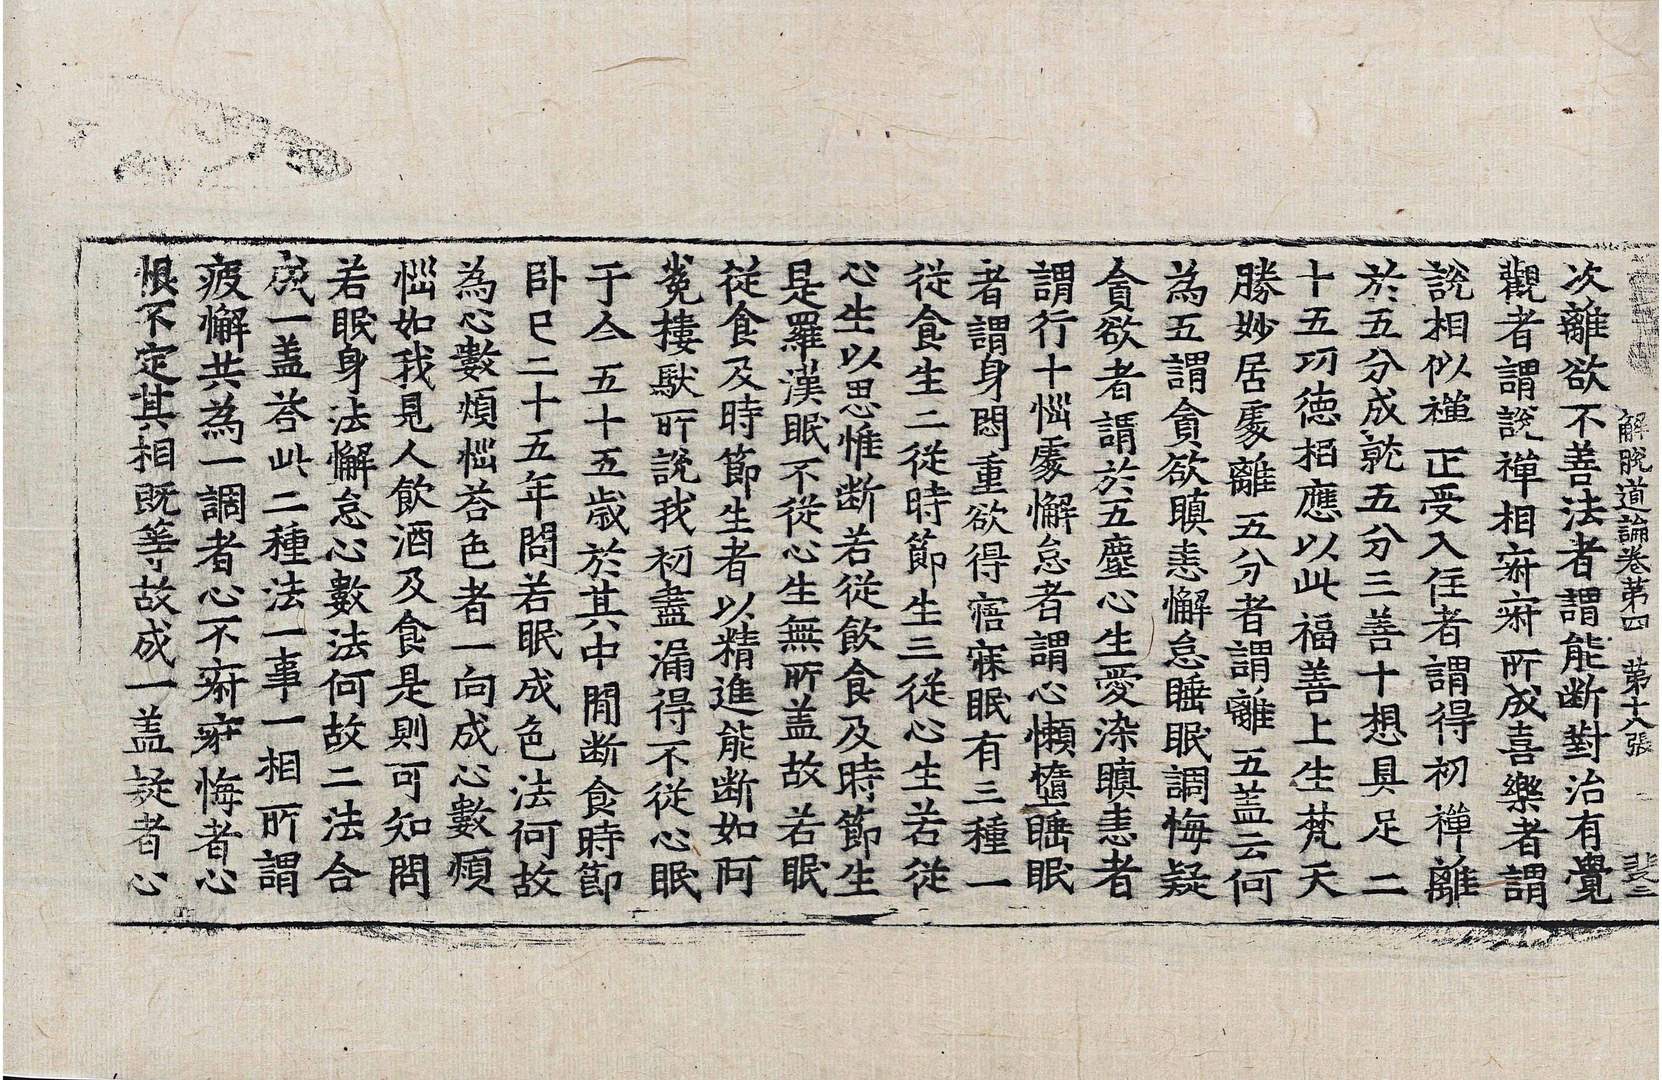 解脫道論卷第四　第十八張　二　斐三
次離欲不善法者謂能断對治有覺
觀者謂說禪相㝛㝛所成喜樂者謂
說相似禪正受入住者謂得初禪離
於五分成就五分三善十想具足二
十五功徳相應以此福善上生梵天
勝妙居處離五分者謂離五盖云何
為五謂貪欲瞋恚懈怠睡眠調悔疑
貪欲者謂於五塵心生愛染瞋恚者
謂行十惱處懈怠者謂心懶墮睡眠
者謂身悶重欲得寤寐眠有三種一
從食生二從時節生三從心生若從
心生以思惟断若從飲食及時節生
是羅漢眠不從心生無所盖故若眠
從食及時節生者以精進能断如阿
㝹樓馱所說我初盡漏得不從心眠
于今五十五歳於其中間断食時節
卧巳二十五年問若眠成色法何故
為心數煩惱荅色者一向成心數煩
惱如我見人飲酒及食是則可知問
若眠身法懈怠心數法何故二法合
成一盖荅此二種法一事一相所謂
疲懈共為一調者心不㝛㝛悔者心
恨不定其相既等故成一盖疑者心